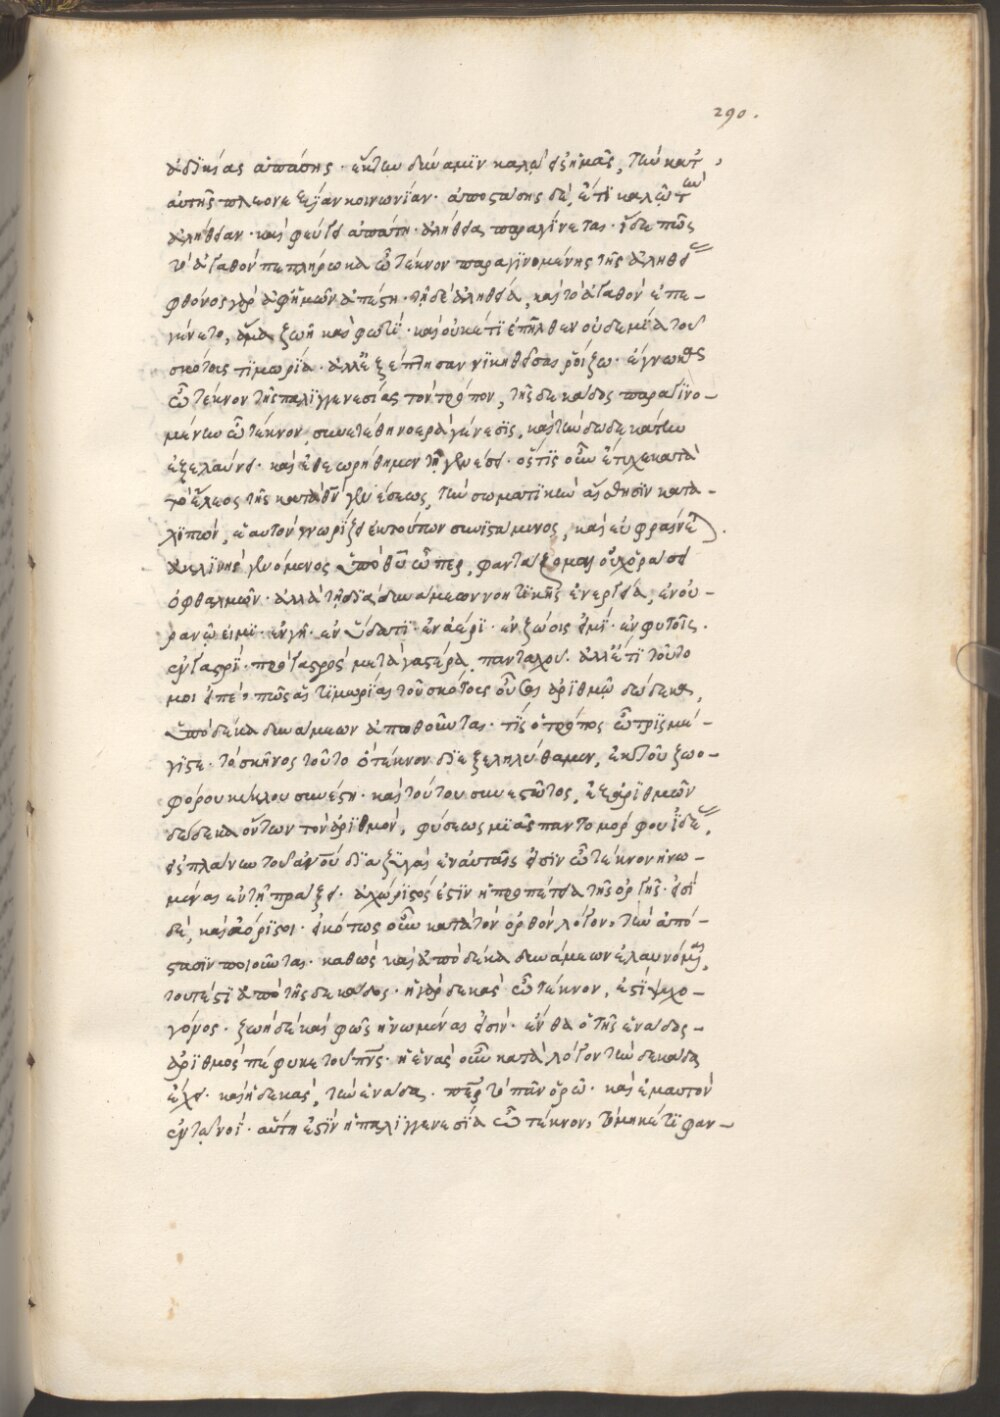 290.
ἀδικίας ἁπάσης· ἕκτην δύναμιν καλῶ εἰς ἡμᾶς, τὴν κατὰ
αὐτῆς πλεονεξίαν κοινωνίαν· ἀποστάσης δὲ, ἔτι καλῶ τὴν
ἀλήθειαν· καὶ φεῦγε ἀπάτη· ἀλήθεια παραγίνεται· ἴδε πῶς
τὸ ἀγαθὸν πεπλήρωκα ὦ τέκνον παραγινομένης τῆς ἀληθεί
φθόνος γὰρ ἀφ' ἡμῶν ἀπέστη· τῇ δὲ ἀληθείᾳ, καὶ τὸ ἀγαθὸν ἐπε-
γένετο, ἅμα ζωῇ καὶ φωτὶ· καὶ οὐκέτι ἐπῆλθεν οὐδεμία τοῦ
σκότους τιμωρία· ἀλλ' ἐξέπτησαν νικηθεῖσαι ῥοίζω· ἔγνωκας
ὦ τέκνον τῆς παλιγγενεσίας τὸν τρόπον, τῆς δεκάδος παραγινο-
μένην ὦ τέκνον, συνετέθη νοερὰ γένεσις, καὶ τὴν δωδεκάτην
ἐξελαύνει· καὶ ἐθεωρήθημεν τῇ γενέσει· ὅστις οὖν ἔτυχε κατὰ
τὸ ἔλεος τῆς κατὰ θεὸν γενέσεως, τὴν σωματικὴν αἴσθησιν κατα-
λιπὼν, ἑαυτὸν γνωρίζει ἐκ τούτων συνιστάμενος, καὶ εὐφραίνεται.
ἀκλινὴς γενόμενος ὑπὸ θεοῦ ὦ περ, φαντάζομαι οὐχ ὁράσει
ὀφθαλμῶν· ἀλλὰ τῇ διὰ δυνάμεων νοητικῆς ἐνεργείᾳ, ἐν οὐ-
ρανῷ εἰμι· ἐν γῇ· ἐν ὕδατι· ἐν ἀέρι· ἐν ζώοις εἰμὶ· ἐν φυτοῖς·
ἐν γαστρὶ· πρὸ γαστρὸς· μετὰ γαστέρα, πανταχοῦ· ἀλλ' ἔτι τοῦτό
μοι εἰπὲ, πῶς αἱ τιμωρίαι τοῦ σκότους οὖσαι ἀριθμῷ δώδεκα,
ὑπὸ δέκα δυνάμεων ἀπωθοῦνται· τίς ὁ τρόπος ὦ τρισμέ-
γιστε· τὸ σκῆνος τοῦτο ὁ τέκνον διεξεληλύθαμεν, ἐκ τοῦ ζωο-
φόρου κύκλου συνέστη· καὶ τούτου συνεστῶτος, ἐξ ἀριθμῶν
δώδεκα ὄντων τὸν ἀριθμὸν, φύσεως μιᾶς παντομόρφου ἰδέ,
εἰς πλάνην τοῦ ἀνου διαζυγαὶ ἐν αὐταῖς εἰσιν ὦ τέκνον ἡνω-
μέναι ἐν τῇ πράξει· ἀχώριστός ἐστιν ἡ προπέτεια τῆς ὀργῆς· εἰσὶ
δὲ, καὶ ἀόριστοι· εἰκότως οὖν κατὰ τὸν ὀρθὸν λόγον, τὴν ἀπό-
στασιν ποιοῦνται· καθὼς καὶ ἀπὸ δέκα δυνάμεων ἐλαυνόμεναι,
τουτέστι ἀπὸ τῆς δεκάδος· ἡ γὰρ δεκὰς ὦ τέκνον, ἐστὶ ψυχο-
γόνος· ζωὴ δὲ καὶ φῶς ἡνωμέναι εἰσὶν· ἔνθα ὁ τῆς ἑνάδος-
ἀριθμὸς πέφυκε τοῦ πνς· ἡ ἑνὰς οὖν κατὰ λόγον τὴν δεκάδα
ἔχει· καὶ ἡ δεκὰς, τὴν ἑνάδα· περ τὸ πᾶν ὁρῶ· καὶ ἐμαυτὸν
ἐν τῷ νοῒ· αὕτη ἐστὶν ἡ παλιγγενεσία ὦ τέκνον, τὸ μηκέτι φαν-